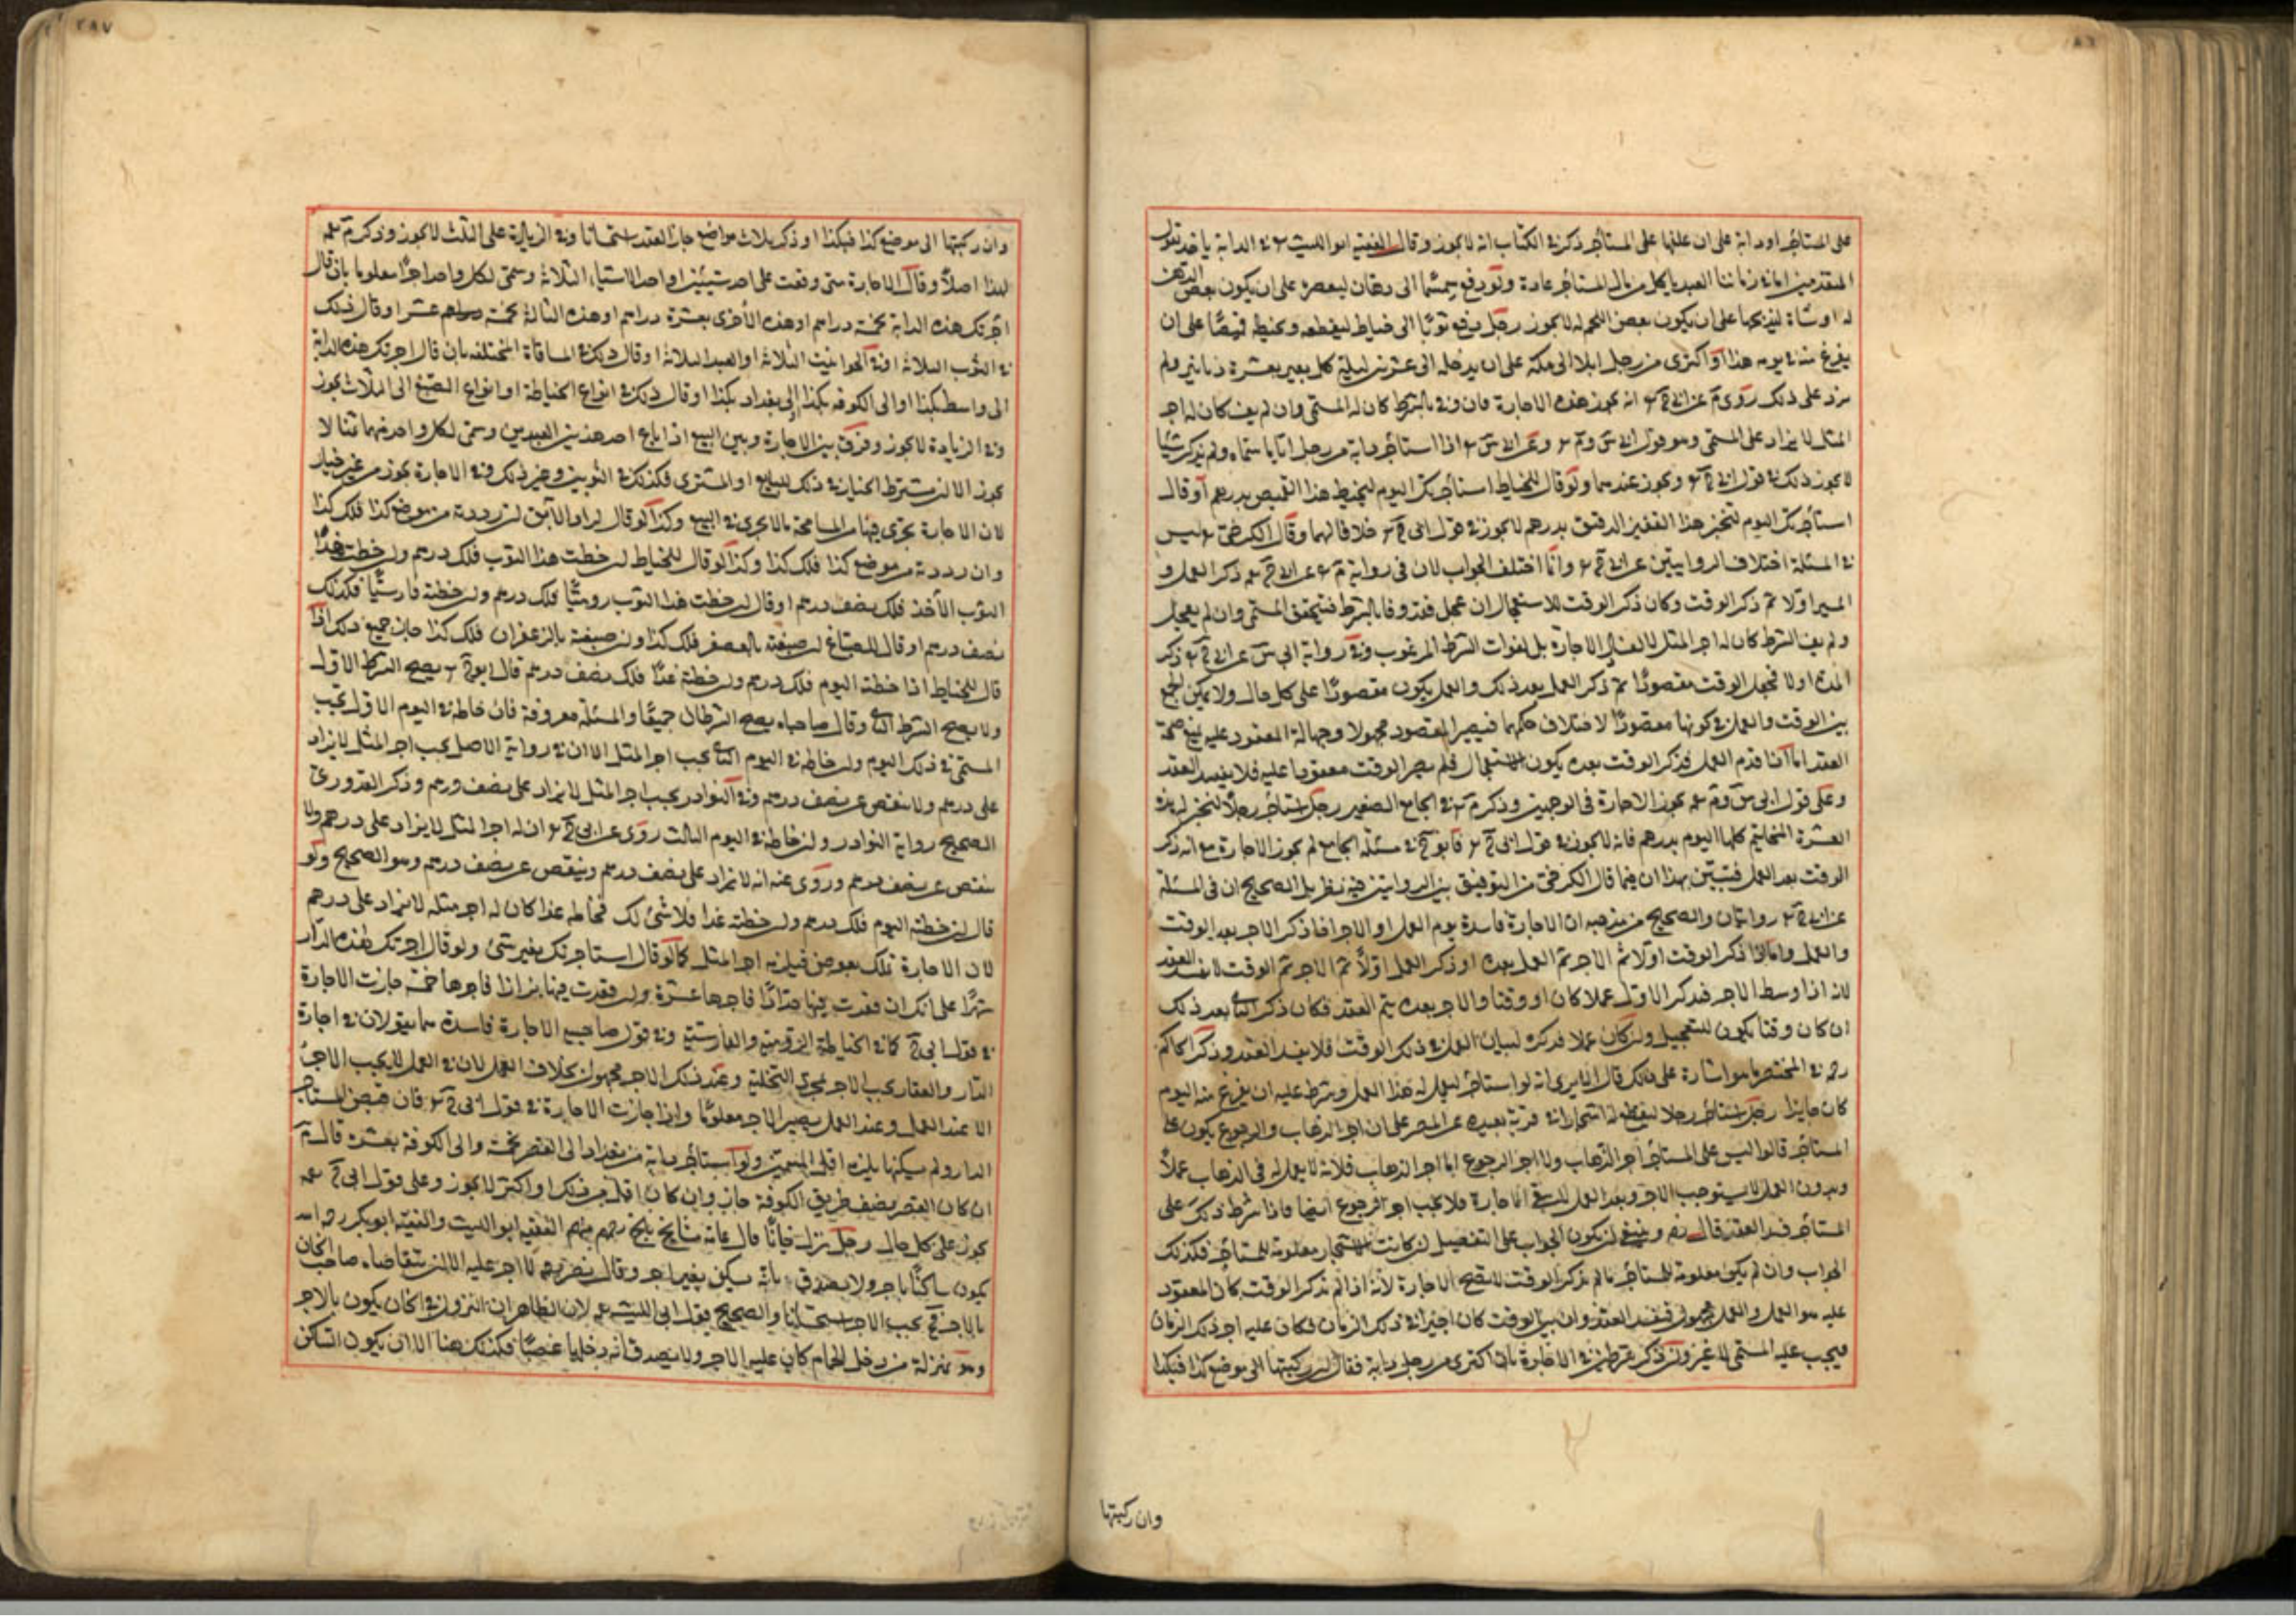 على المستأجر او دابة على ان علفها على المستأجر ذكر في الكتاب انه لا يجوز وقال الفقيه ابو الليث في الدابة ياخذ بقول
المتقدمين اما في زماننا العبد ياكل من مال المستأجر عادة ولو دفع سمسما الى دهان ليعصره على ان يكون بعض الدهن
له او شاة ليذبحها على ان يكون بعض اللحم له لا يجوز رجل دفع ثوبا الى خياط ليقطعه ويخيطه قميصا على ان
يفرغ منه في يومه هذا او اكترى من رجل ابلا الى مكة على ان يدخله الى عشرين ليلة كل بعير بعشرة دنانير ولم
يزد على ذلك روى م عن ابي ح انه يجوز هذه الاجارة فان وفى بالشرط كان له المسمى وان لم يف كان له اجر
المثل لا يزاد على المسمى وهو قول ابي س و م وعن ابي س اذا استأجر دابة من رجل اياما مسماه ولم يذكر شيئا
لا يجوز ذلك في قول ابي ح ويجوز عندهما ولو قال للخياط استأجرتك اليوم لتخيط هذا القميص بدرهم او قال
استأجرتك اليوم لتخبز هذا القفيز الدقيق بدرهم لا يجوز في قول ابي ح خلافا لهما وقال الكرخي ليس
في المسئلة اختلاف الروايتين عن ابي ح وانما اختلف الجواب لان في رواية م عن ابي ح ذكر العمل و
المسير اولا ثم ذكر الوقت وكان ذكر الوقت للاستعجال ان عجل فقد وفا بالشرط فيستحق المسمى وان لم يعجل
ولم يف الشرط كان له اجر المثل لا لفساد الاجارة بل لفوات الشرط المرغوب وفي رواية ابي س عن ابي ح ذكر
المدة اولا فجعل الوقت مقصودا ثم ذكر العمل بعد ذلك والعمل يكون مقصودا على كل حال ولا يمكن الجمع
بين الوقت والعمل في كونها مقصودا لاختلاف حكمهما فيصير المقصود مجهولا وجهالة المعقود عليه يمنع صحة
العقد اما اذا قدم العمل فذكر الوقت بعده يكون للاستعجال فلم يصر الوقت معقودا عليه فلا يفسد العقد
وعلى قول ابي س و م يجوز الاجارة في الوجهين وذكر م في الجامع الصغير رجل استأجر رجلا ليخبز له هذه
العشرة المخاتيم كلها اليوم بدرهم فانه لا يجوز في قول ابي ح فابو ح في مسئلة الجامع لم يجوز الاجارة مع انه ذكر
الوقت بعد العمل فتبين بهذا ان فيما قال الكرخي من التوفيق بين الروايتين فيه نظر بل الصحيح ان في المسئلة
عن ابي ح روايتان والصحيح من مذهبه ان الاجارة فاسدة يوم العمل او الاجر اذا ذكر الاجر بعد الوقت
والعمل واما اذا ذكر الوقت اولا ثم الاجر ثم العمل بعده او ذكر العمل اولا ثم الاجر ثم الوقت لا يفسد العقد
لانه اذا وسط الاجر فذكر الاول عملا كان او وقتا والاجر بعده يتم العقد فكان ذكر الثاني بعد ذلك
ان كان وقتا يكون للتعجيل وان كان عملا فذكره لبيان العمل في ذلك الوقت فلا يفسد العقد وذكر الحاكم
رح في المختصر ما هو اشارة على ذلك قال الا يرى انه لو استأجر ليعمل له هذا العمل وشرط عليه ان يفرغ منه اليوم
كان جايزا رجل استأجر رجلا ليقطع له اشجارا في قرية بعيدة عن المصر على ان اجر الذهاب والرجوع يكون على
المستأجر قالوا ليس على المستأجر اجر الذهاب ولا اجر الرجوع اما اجر الذهاب فلانه لا يعمل له في الذهاب عملا
وبدون العمل لا يستوجب الاجر وبعد العمل لا يبقى الاجارة فلا يجب اجر الرجوع ايضا فاذا شرط ذلك على
المستأجر فسد العقد قال رض وينبغي ان يكون الجواب على التفصيل ان كانت الاشجار معلومة للمستأجر فكذلك
الجواب وان لم يكن معلومة للمستأجر ما لم يذكر الوقت لا يصح الاجارة لانه اذا لم يذكر الوقت كان المعقود
عليه هو العمل والعمل مجهول فيفسد العقد وان بين الوقت كان اجيرا في ذلك الزمان فكان عليه اجر ذلك الزمان
فيجب عليه المسمى لا غير وان ذكر شرطين في الاجارة بان اكترى من رجل دابة فقال ان ركبتها الى موضع كذا فبكذا
وان ركبتها
وان ركبتها الى موضع كذا فبكذا او ذكر ثلاث مواضع جاز العقد استحسانا وفي الزيادة على الثلث لا يجوز وذكر م
لهذا اصلا وقال الاجارة متى وقعت على احد شيئين او احد الاشياء الثلاثة وسمى لكل واحد اجرا معلوما بان قال
اجرتك هذه الدابة بخمسة دراهم او هذه الاخرى بعشرة دراهم او هذه الثالثة بخمسة عشر او قال ذلك
في الثوب الثلاثة او في الحوانيت الثلاثة او العبد الثلاثة او قال ذلك في المسافات المختلفة بان قال اجرتك هذه الدابة
الى واسط بكذا او الى الكوفة بكذا الى بغداد بكذا او قال ذلك في انواع الخياطة او انواع الصبغ الى الثلاث يجوز
وفي الزيادة لا يجوز وفرق بين الاجارة وبين البيع اذا باع احد هذين العبدين وسمى لكل واحد منهما ثمنا لا
يجوز الا ان يشترط الخيار في ذلك للبايع او المشتري فكذلك في الثوبين وغير ذلك وفي الاجارة يجوز من غير خيار
لان الاجارة تجرى فيها من المسامحة ما لا يجرى في البيع وكذا لو قال لراد الابق ان رددته من موضع كذا فلك كذا
وان رددته من موضع كذا فلك كذا وكذا لو قال للخياط ان خطت هذا الثوب فلك درهم وان خطت هذا
الثوب الاخر فلك نصف درهم او قال ان خطت هذا الثوب روميا فلك درهم وان خطته فارسيا فكذلك
نصف درهم او قال للصباغ ان صبغته بالعصفر فلك كذا وان صبغته بالزعفران فلك كذا جاز جميع ذلك اذا
قال للخياط اذا خطته اليوم فلك درهم وان خطته غدا فلك نصف درهم قال ابو ح يصح الشرط الاول
ولا يصح الشرط الثاني وقال صاحباه يصح الشرطان جميعا والمسئلة معروفة فان خاطه في اليوم الاول يجب
المسمى في ذلك اليوم وان خاطه في اليوم الثاني يجب اجر المثل الا ان في رواية الاصل يجب اجر المثل لا يزاد
على درهم ولا ينقص عن نصف درهم وفي النوادر يجب اجر المثل لا يزاد على نصف درهم وذكر القدوري
الصحيح رواية النوادر وان خاطه في اليوم الثالث روى عن ابي ح ان له اجر المثل لا يزاد على درهم ولا
ينقص عن نصف درهم وروى عنه انه لا يزاد على نصف درهم وينقص عن نصف درهم وهو الصحيح ولو
قال ان خطته اليوم فلك درهم وان خطته غدا فلا شئ لك فخاطه غدا كان له اجر مثله لا يزاد على درهم
لان الاجارة تملك بعوض فيلزمه اجر المثل كما لو قال استاجرتك بغير شئ ولو قال اجرتك هذه الدار
شهرا على انك ان قعدت فيها حدادا فاجرها عشرة وان قعدت فيها بزازا فاجرها خمسة جازت الاجارة
في قول ابي ح كما في الخياطة الرومية والفارسية وفي قول صاحبيه الاجارة فاسدة هما يقولان في اجارة
الدار والعقار يجب الاجر بمجرد التخلية وعند ذلك الاجر مجهول بخلاف العمل لان في العمل لا يجب الاجر
الا عند العمل وعند العمل يصير الاجر معلوما واذا جازت الاجارة في قول ابي ح فان قبض المستاجر
الدار ولم يسكنها يلزمه اقل المسميين ولو استأجر دابة من بغداد الى القصر بخمسة والى الكوفة بعشرة قال م
ان كان القصر نصف طريق الكوفة جاز وان كان اقل من ذلك او اكثر لا يجوز وعلى قول ابي ح
يجوز على كل حال رجل نزل خانا قال عامة مشايخ بلخ رحمهم منهم الفقيه ابو الليث والفقيه ابو بكر رحمه الله
يكون ساكنا باجر ولا يصدق انه سكن بغير اجر وقال نصر لا اجر عليه الا ان يتقاضاه صاحب الخان
بالاجر يجب الاجر استحسانا والصحيح قول ابي الليث لان الظاهر ان النزول في الخان يكون بالاجر
وهو بمنزلة من دخل الحمام كان عليه الاجر ولا يصدق انه دخلها غصبا فكذلك هنا الا ان يكون الساكن